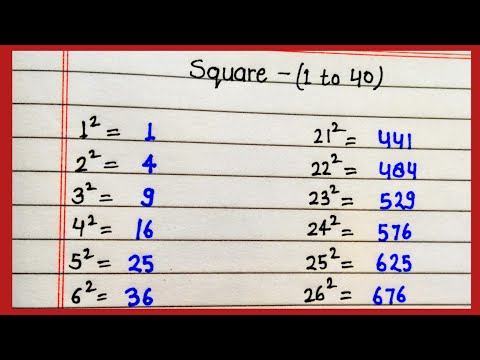 Square - (1 to 40)
1² = 1
2² = 4
3² = 9
4² = 16
5² = 25
6² = 36
21² = 441
22² = 484
23² = 529
24² = 576
25² = 625
26² = 676